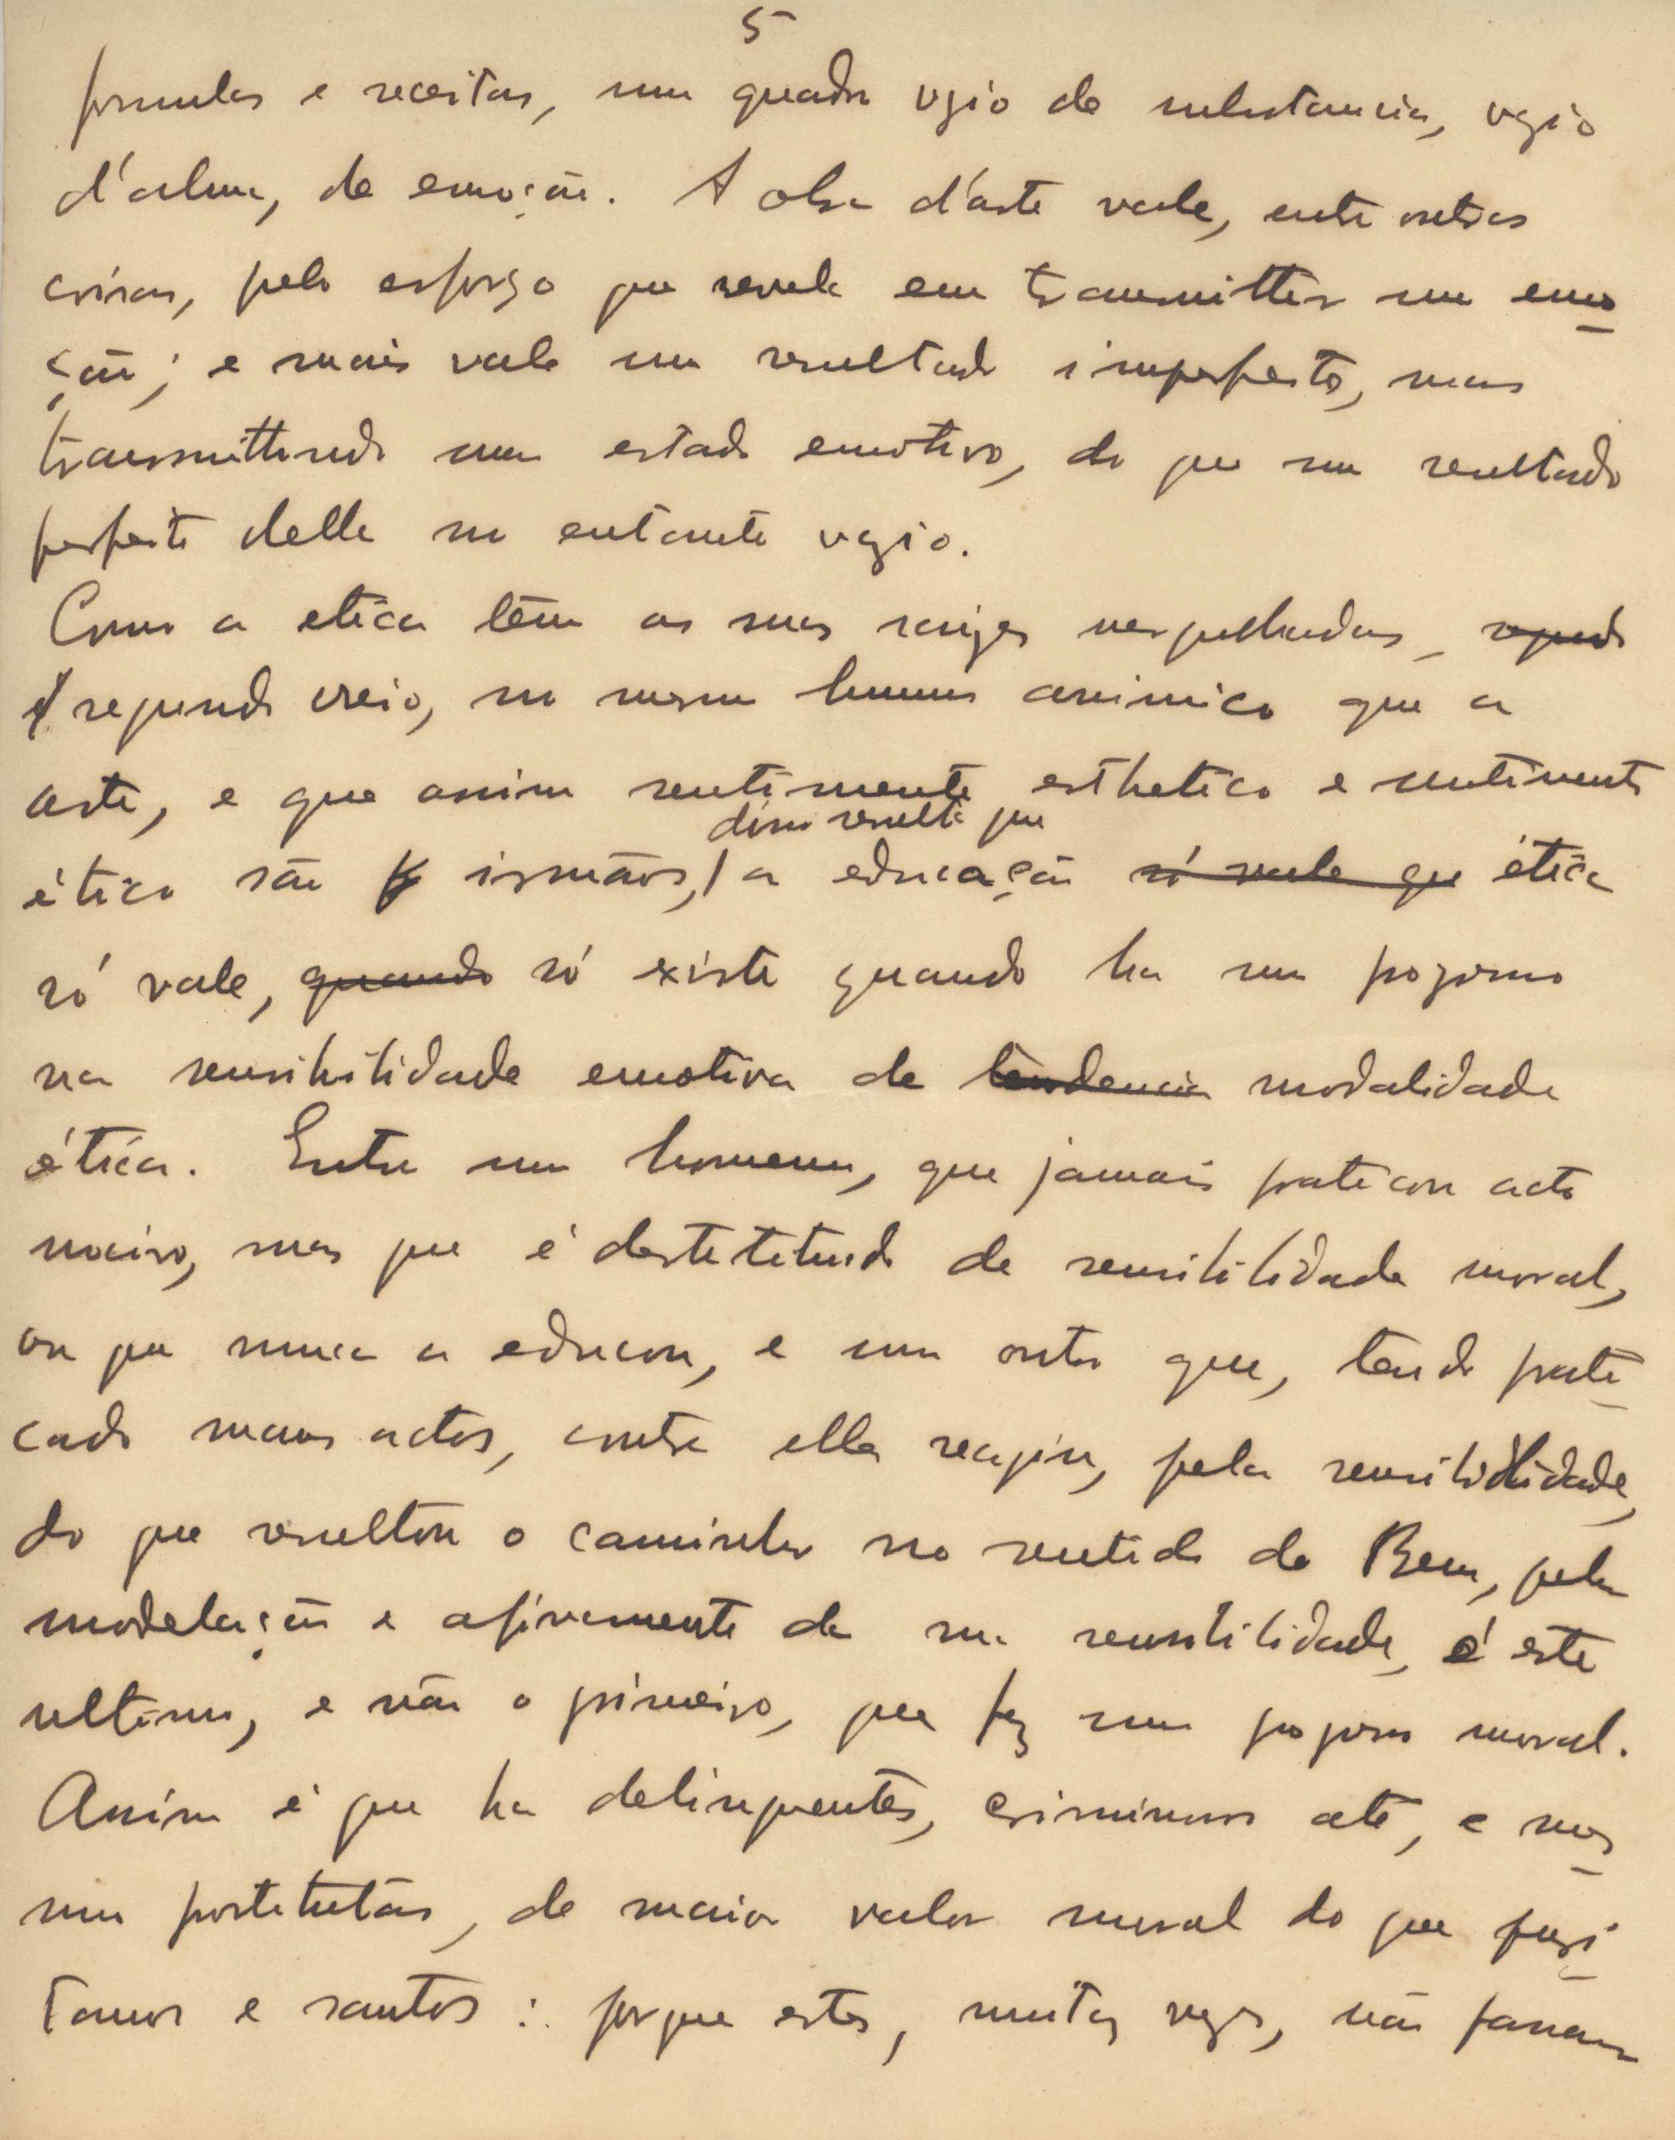 5
formulas e receitas, um quadro vazio de substancia, vazio
d'alma, de emoção. A obra d'arte vale, entre outras
coisas, pelo esforço que revela em transmittir uma emo-
ção; e mais vale um resultado imperfeito, mas
transmittindo um estado emotivo, do que um resultado
perfeito delle no entanto vazio.
Como a etica têm as suas raizes mergulhadas, segundo
segundo creio, no mesmo humus animico que a
arte, e que assim sentimento esthetico e sentimento
disso resulta que
ético são irmãos, a educação só vale que ética
só vale, quando só existe quando ha um progresso
na sensibilidade emotiva de tendencia modalidade
ética. Entre um homem, que jamais praticou acto
nocivo, mas que é destetetuido de sensibilidade moral,
ou que nunca a educou, e um outro que, tendo prati-
cado maus actos, contra elles reagiu, pela sensibilidade,
do que resultou o caminhar no sentido do Bem, pela
modelação e afinamento da sua sensibilidade, é este
ultimo, e não o primeiro, que fez um progresso moral.
Assim é que ha delinquentes, criminosos até, e mes-
mo prostitutas, de maior valor moral do que puri-
tanos e santos: porque estes, muitas vezes, não passam